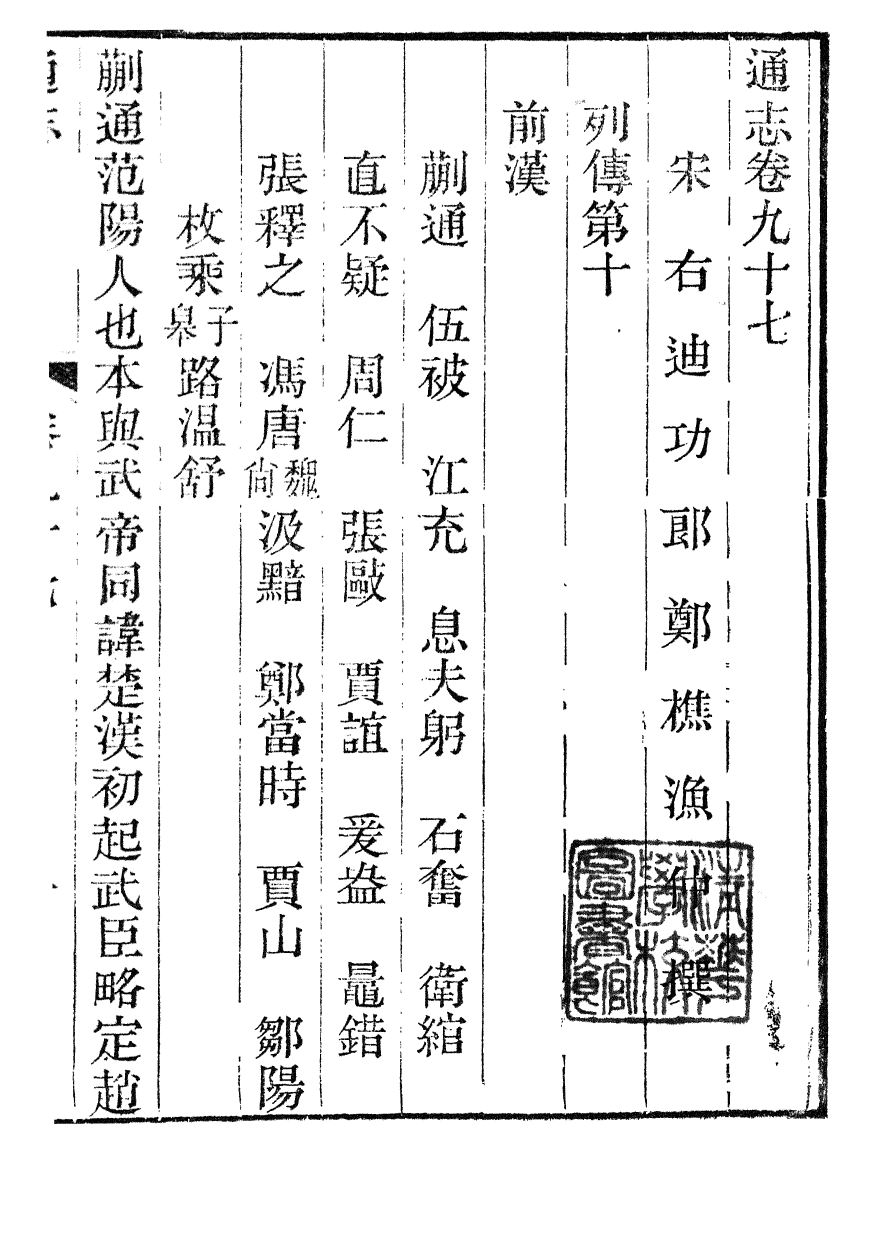 通志卷九十七
宋右迪功郎鄭樵漁仲撰
列傳第十
前漢
蒯通 伍被 江充 息夫躬 石奮 衛綰
直不疑 周仁 張敺 賈誼 爰盎 鼂錯
張釋之 馮唐魏尙 汲黯 鄭當時 賈山 鄒陽
枚乘子皋 路温舒
蒯通范陽人也本與武帝同諱楚漢初起武臣略定趙
清華學校圖書館